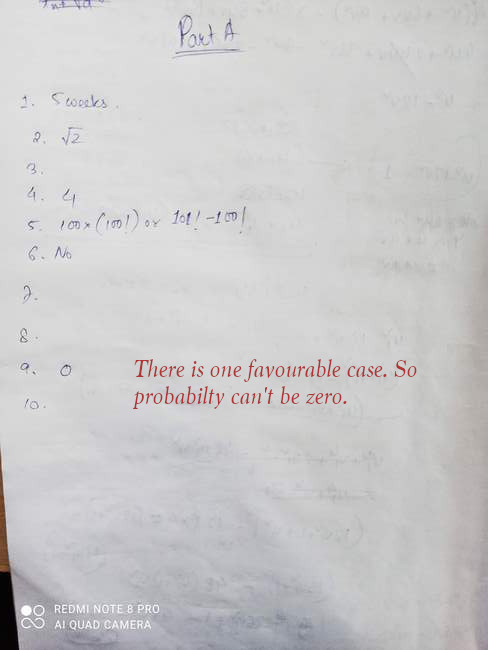 Part A
1. 5 weeks.
2. √2
3.
4. 4
5. 100×(100!) or 101! -100!
6. No
7.
8.
9. 0
There is one favourable case. So
probabilty can't be zero.
10.
REDMI NOTE 8 PRO
AI QUAD CAMERA